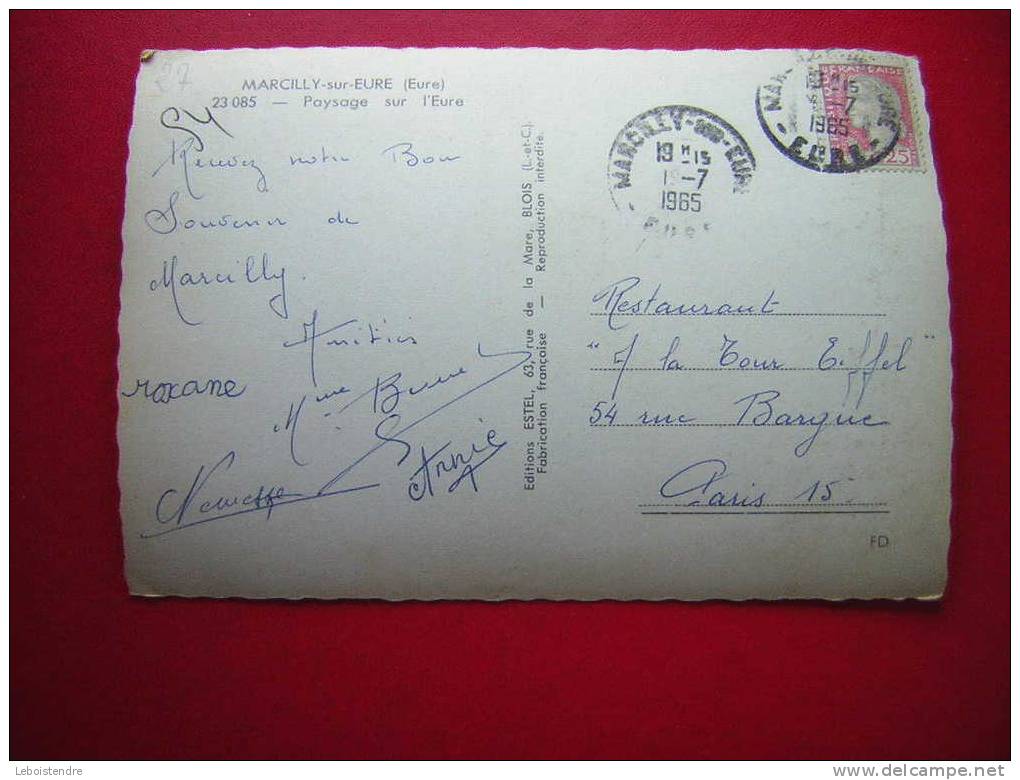 27
MARCILLY-sur-EURE (Eure)
23 085 — Paysage sur l'Eure
54
Recevez notre Bon
Souvenir de
Marcilly.
Amitiés
roxane
Mme
Annie
Editions ESTEL, 63, rue de la Mare, BLOIS (L.-et-C.).
Fabrication française — Reproduction interdite.
MARCILLY-SUR-EURE
19 H 15
-7
1965
EURE
FRANÇAISE
19 H 15
-7
1965
EURE
0,25
Restaurant
"A la Tour Eiffel"
54 rue Bargue
Paris 15
FD
Leboistendre
www.delcampe.net